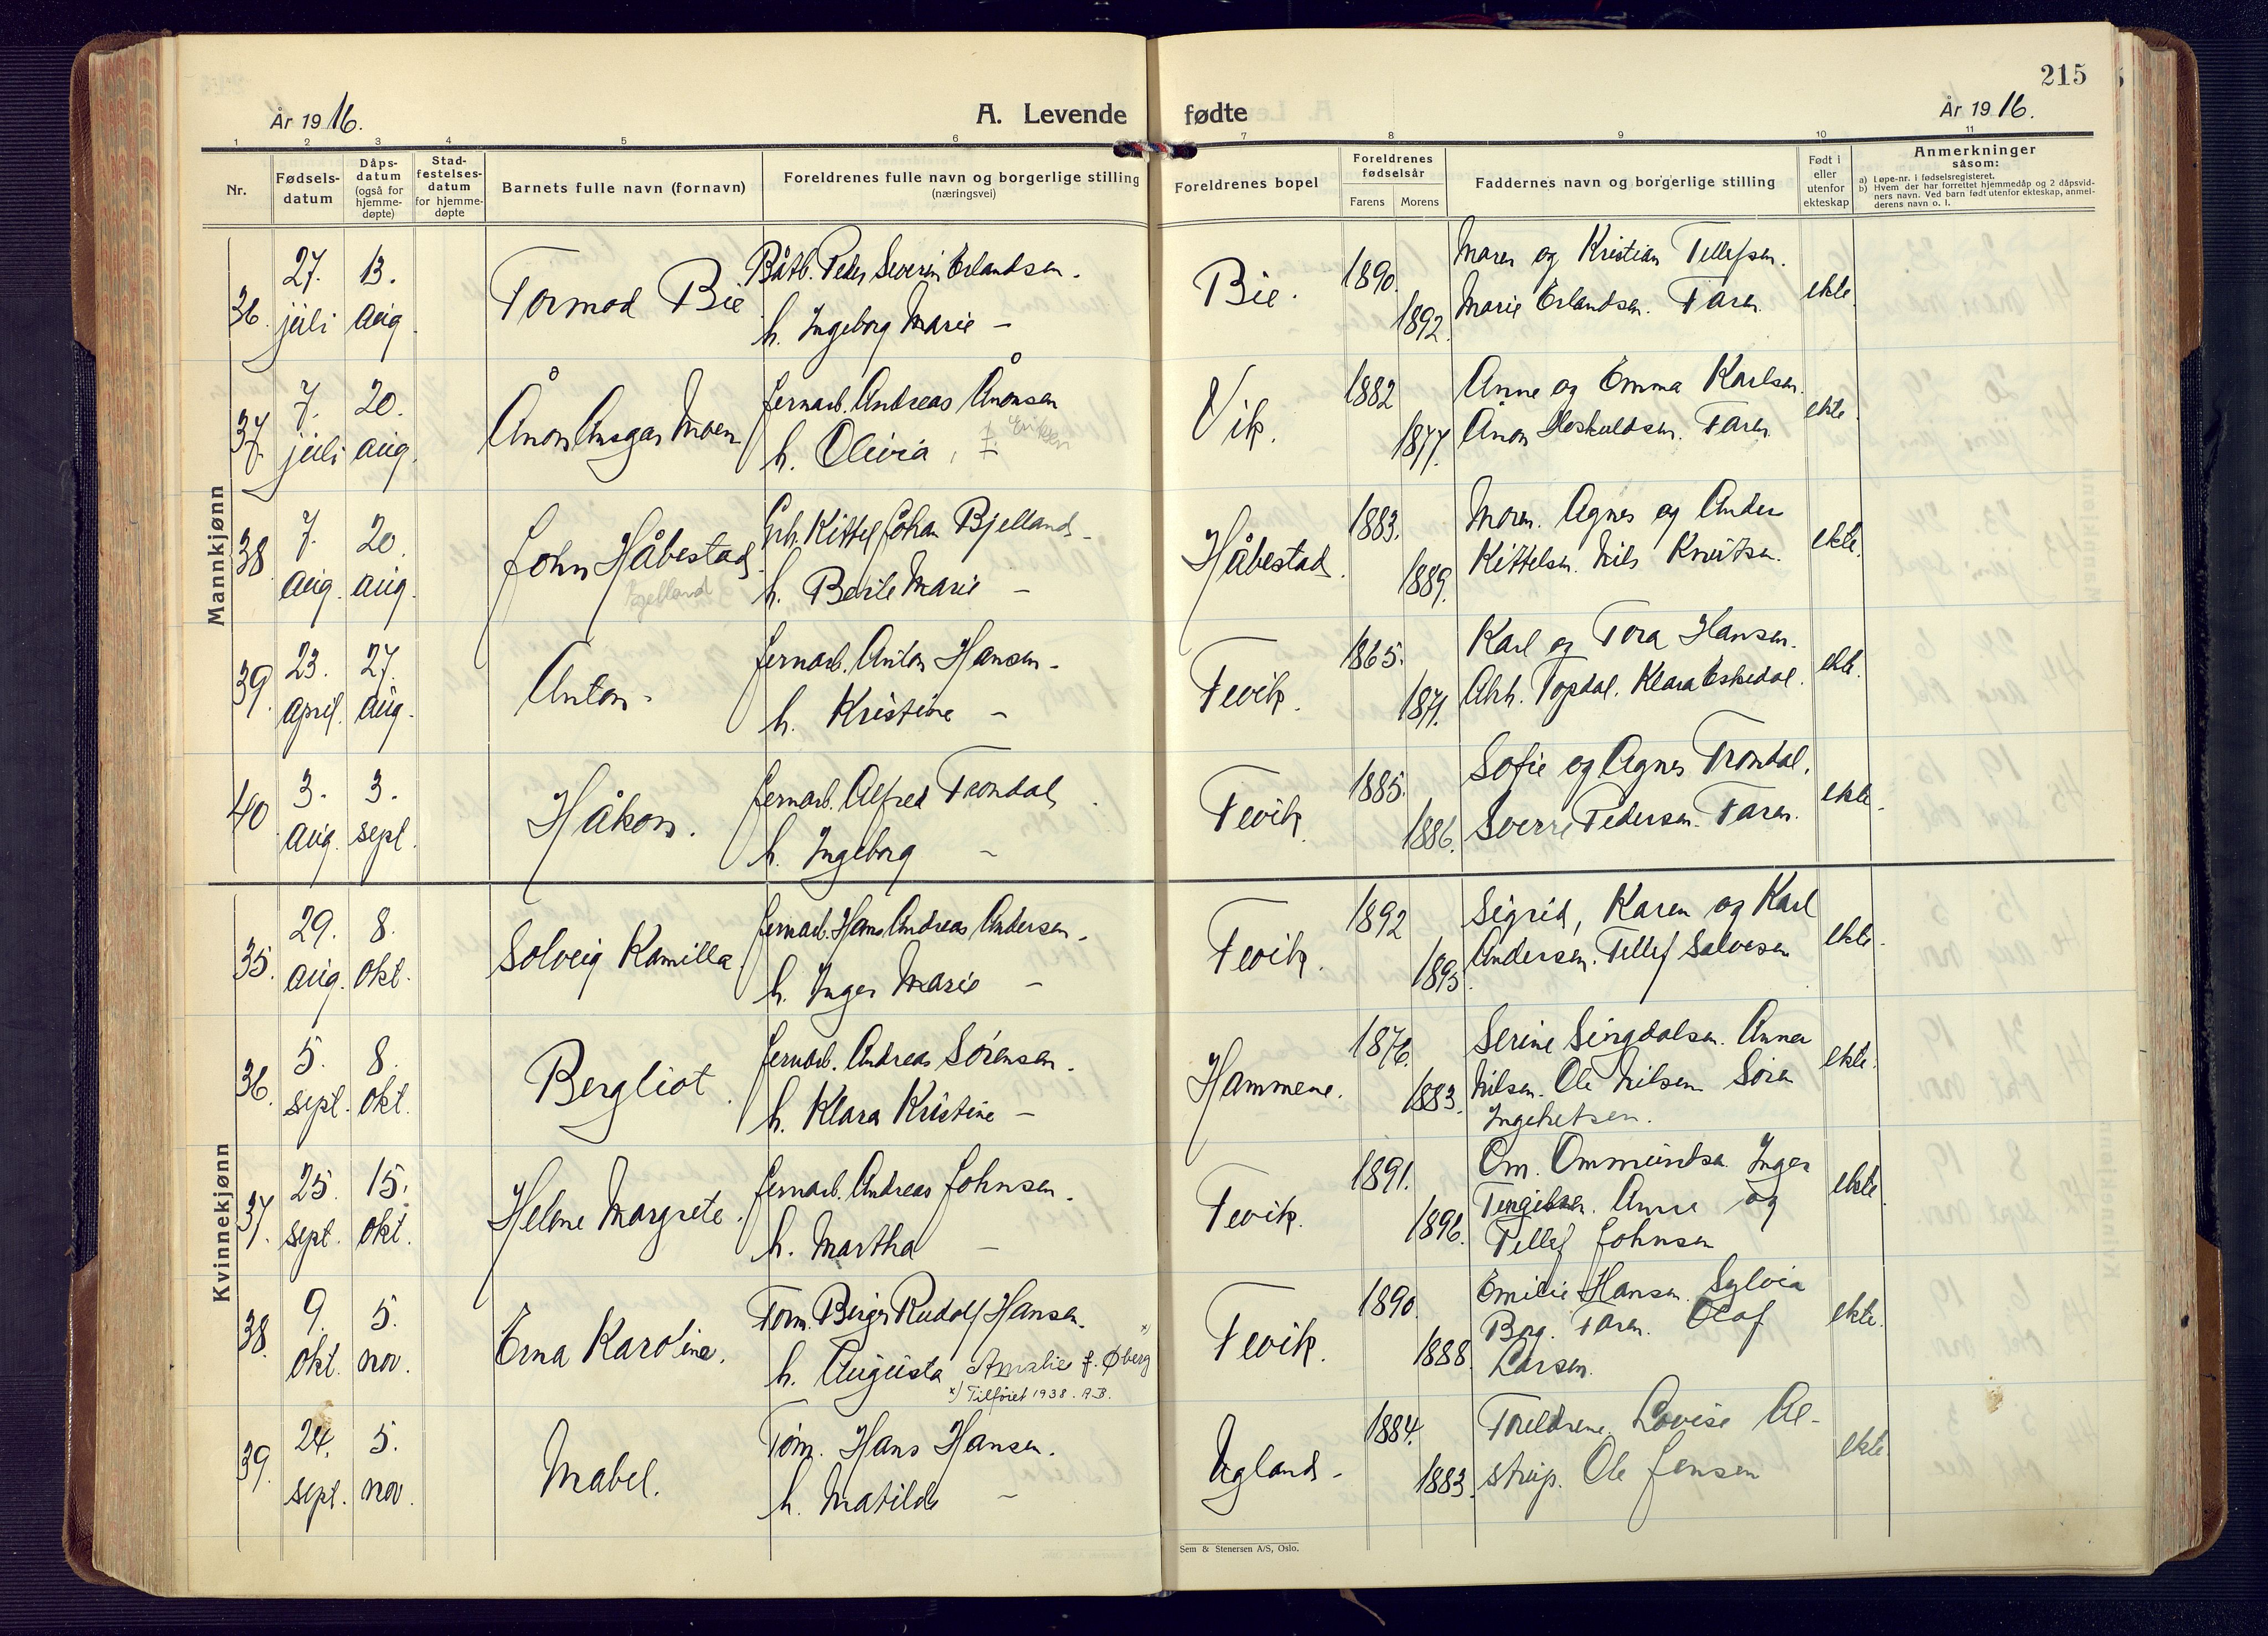 215
År 1916.
A. Levende fødte
År 1916.
1 2 3 4 5 6 7 8 9 10 11
Nr.
Fødsels-
datum
Dåps-
datum
(også for
hjemme-
døpte)
Stad-
festelses-
datum
for hjemme-
døpte
Barnets fulle navn (fornavn)
Foreldrenes fulle navn og borgerlige stilling
(næringsvei)
Foreldrenes bopel
Foreldrenes
fødselsår
Farens Morens
Faddernes navn og borgerlige stilling
Født i
eller
utenfor
ekteskap
Anmerkninger
såsom:
a) Løpe-nr. i fødselsregisteret.
b) Hvem der har forrettet hjemmedåp og 2 dåpsvid-
ners navn. Ved barn født utenfor ekteskap, anmel-
derens navn o. l.
Mannkjønn
36. 27. juli 13. aug. Tormod Bie
Båtb. Peder Severin Erlandsen.
h. Ingeborg Marie –
Bie. 1890. 1892.
Maren og Kristian Tellefsen.
Marie Erlandsen. Faren.
ekte.
37. 7. juli 20. aug. Ånon Ansgar Moen
Jernarb. Andreas Ånonsen
h. Olivia, f.
Vik. 1882 1877.
Anne og Emma Karlsen.
Ånon Hoskuldsen. Faren.
ekte.
38. 7. aug. 20. aug. John Håbestad.
Bjelland
Grb. Kittel Johan Bjelland –
h. Berte Marie –
Håbestad. 1883. 1889.
Moren. Agnes og Anders
Kittelsen. Nils Knutsen.
ekte.
39. 23. april. 27. aug. Anton.
Jernarb. Anton Hansen –
h. Kristine –
Fevik. 1865. 1871.
Karl og Tora Hansen.
Topdal. Klara Eskedal.
ekte.
40. 3. aug. 3. sept. Håkon.
Jernarb. Alfred Trondal.
h. Ingeborg –
Fevik. 1885. 1886.
Sofie og Agnes Trondal.
Sverre Pedersen. Faren.
ekte.
Kvinnekjønn
35. 29. aug. 8. okt. Solveig Kamilla.
Jernarb. Hans Andreas Andersen.
h. Inger Marie –
Fevik. 1892 1895.
Sigrid, Karen og Karl
Andersen. Tellef Salvesen
ekte.
36. 5. sept. 8. okt. Bergliot.
Jernarb. Andreas Sørensen.
h. Klara Kristine –
Hammene. 1876. 1883.
Serine Singdalsen. Anna
Nilsen. Ole Nilsen Søren
Ingebretsen.
ekte.
37. 25. sept. 15. okt. Helene Margrete.
Jernarb. Andreas Johnsen.
h. Martha –
Fevik. 1891. 1896.
Om. Ommundsen. Inger
Tergelsen. Anna og
Tellef Johnsen
ekte.
38. 9. okt. 5. nov. Erna Karoline.
Tøm. Birger Rudolf Hansen.
h. Augusta Amalie f. Øberg x)
x) Tilføiet 1938. A.B.
Fevik. 1890. 1888.
Emilie Hansen. Sylvia
Berg. Faren. Olaf
Larsen.
ekte.
39. 24. sept. 5. nov. Mabel.
Tøm. Hans Hansen.
h. Matilde –
Ugland. 1884. 1883.
Foreldrene. Lovise Al-
strup. Ole Jensen
ekte.
Sem & Stenersen A/S, Oslo.